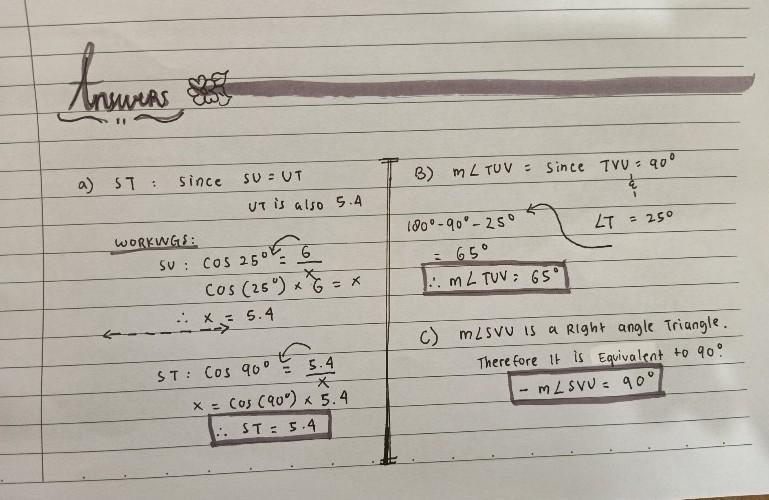 Answers
a) ST : Since SU = UT
UT is also 5.4
WORKINGS:
SU : COS 25° = 6/x
COS (25°) × 6 = x
∴ x = 5.4
ST : COS 90° = 5.4/x
x = COS (90°) × 5.4
∴ ST = 5.4
B) m∠TUV = Since TVU = 90°
&
180° - 90° - 25° ∠T = 25°
= 65°
∴ m∠TUV = 65°
C) m∠SVU is a Right angle Triangle.
Therefore it is Equivalent to 90°.
- m∠SVU = 90°